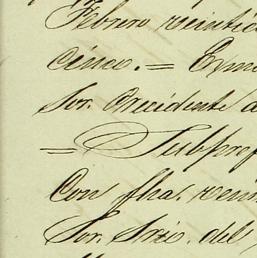 Febrero veintici
cinco. = Exmo
Sor. Presidente d
= Subpref
Con fha. vein
Sor. Srio. del